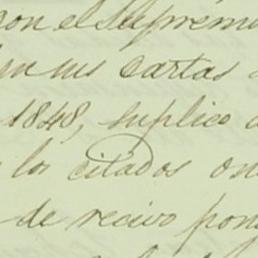 con el Supremo
en sus cartas
1848, suplico a
los citados on
de recivo pong